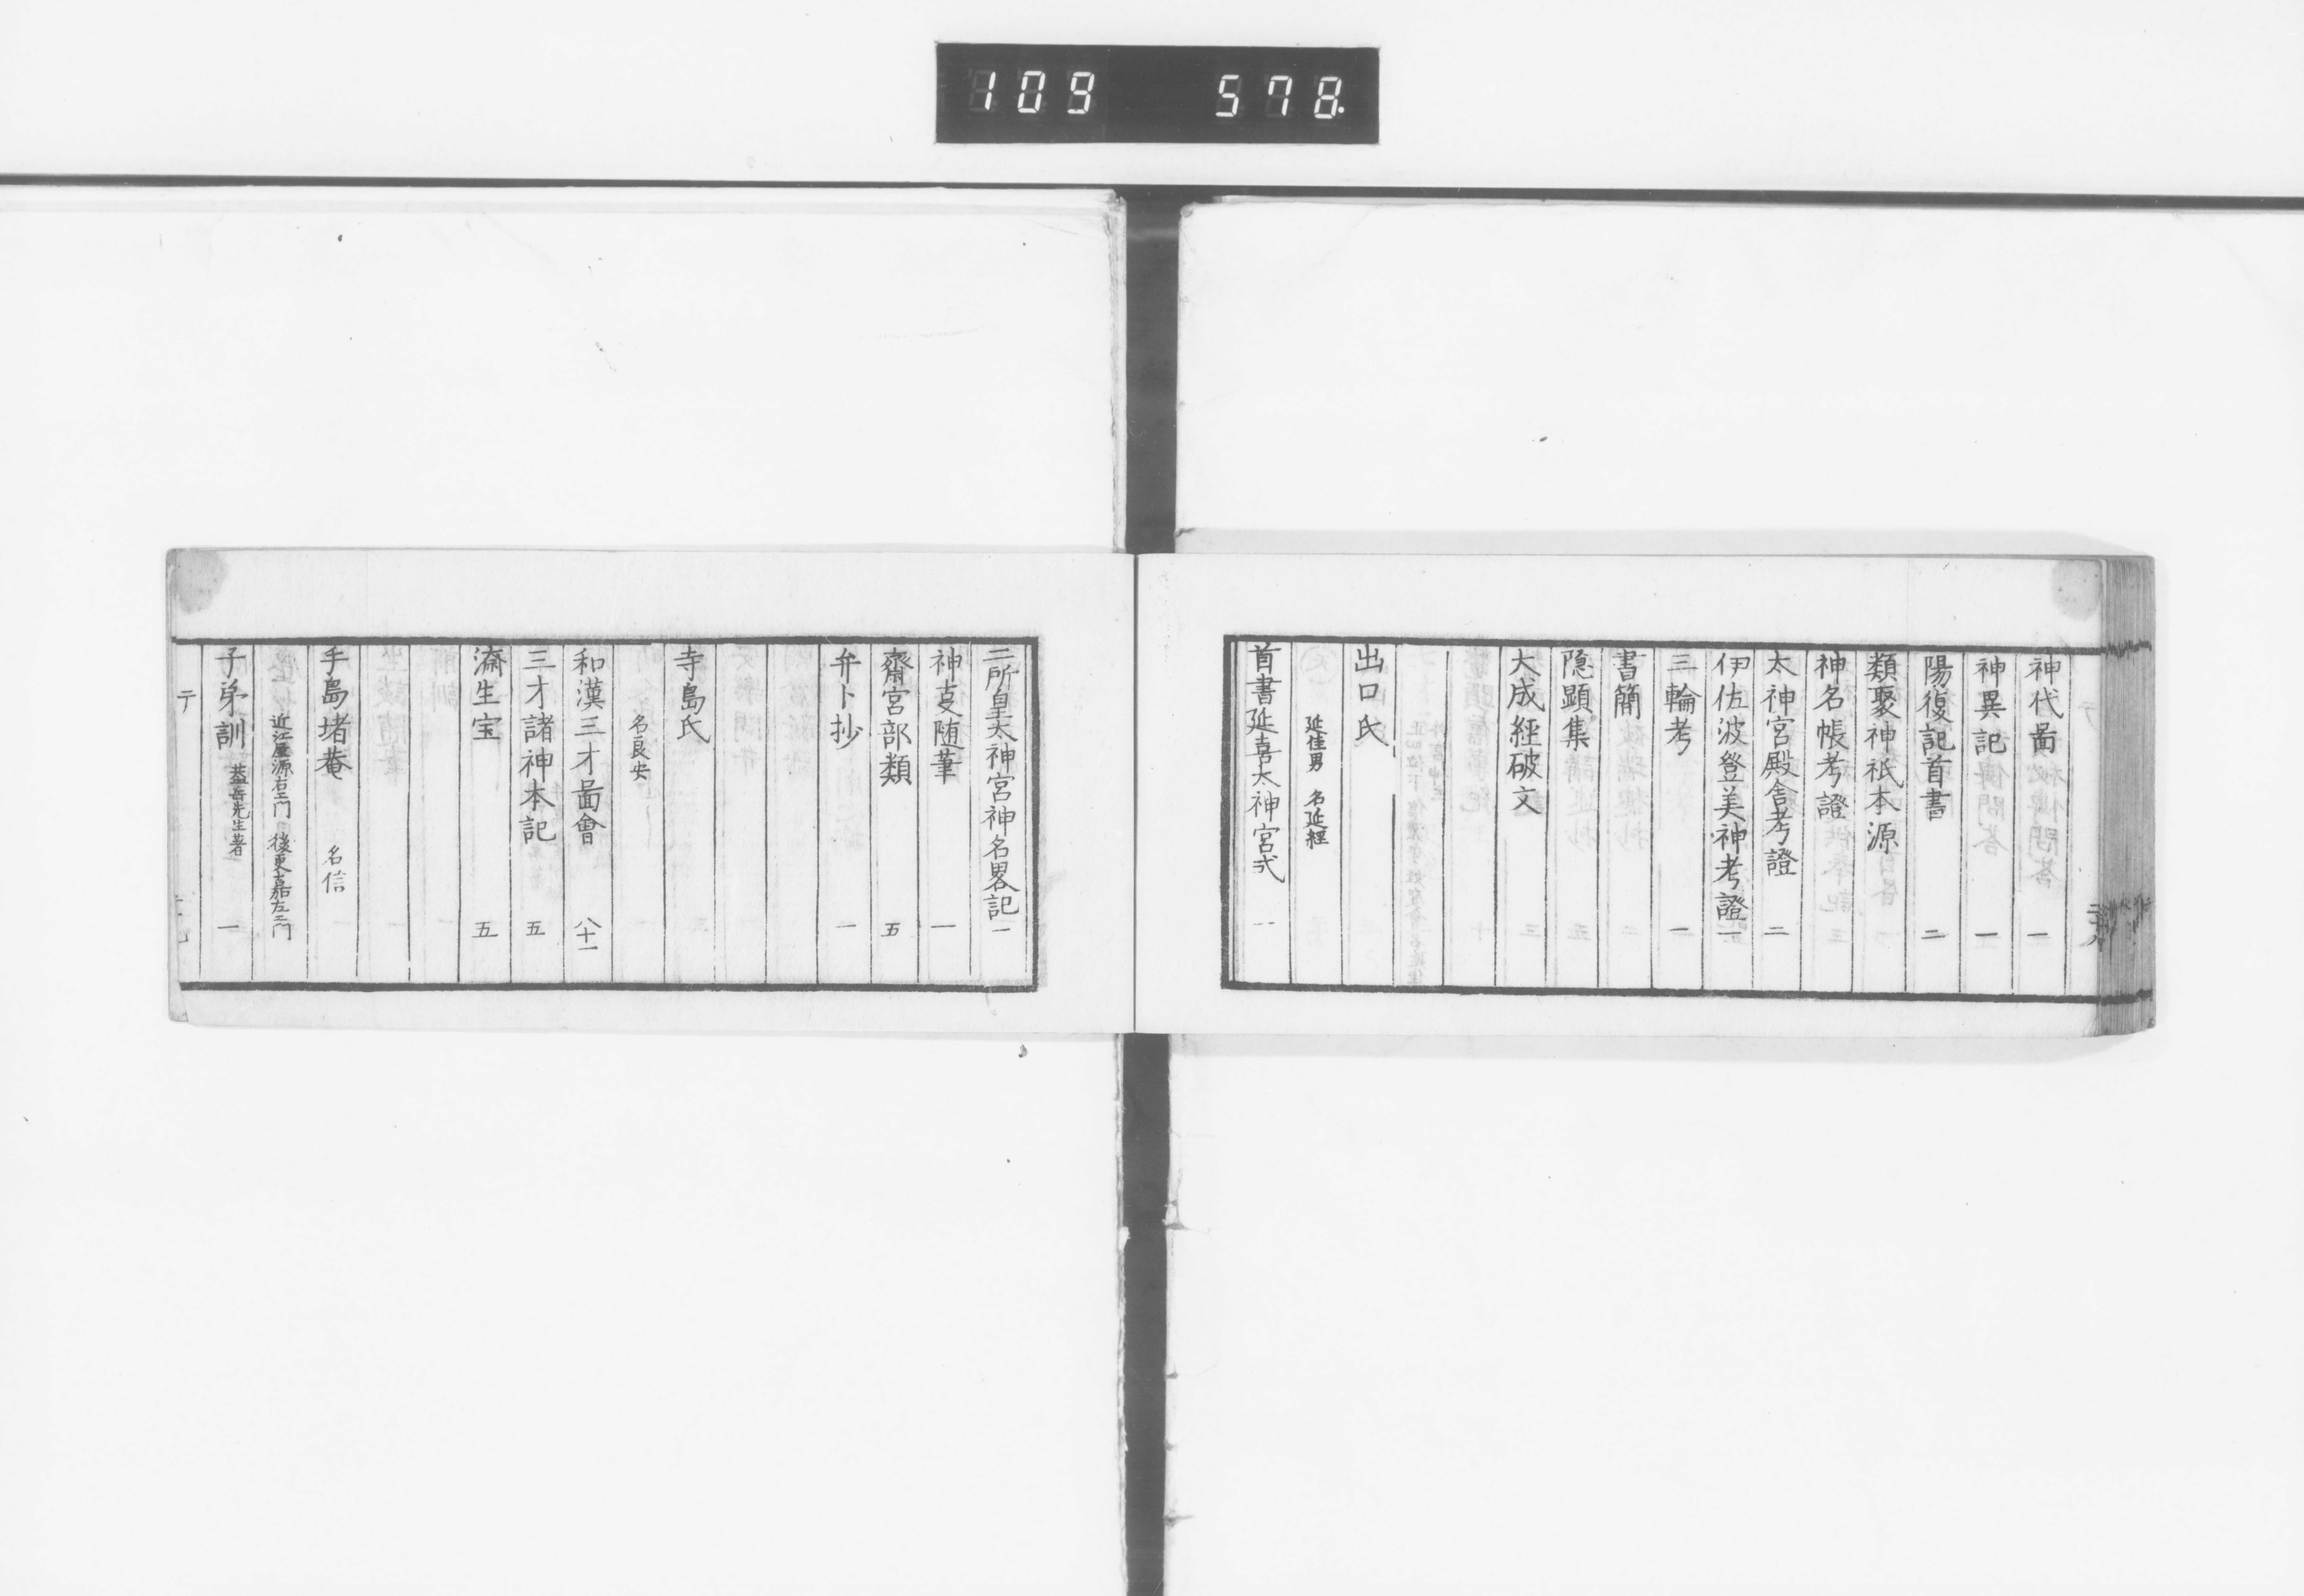 109 578.
神代啚 一
神異記 一
陽復記首書 二
類聚神祇本源
神名帳考證
太神宮殿舎考證 二
伊佐波登美神考證 一
三輪考 一
書簡
隠顕集
大成經破文
出口氏
延佳男 名延經
首書延喜大神宮式 一
二所皇太神宮神名畧記 一
神㕝随筆 一
齋宮部類 五
弁卜抄 一
寺島氏
名良安
和漢三才啚會 八十一
三才諸神本記 五
濟生宝 五
手島堵菴 名信
近江屋源右エ門 後更嘉左エ門
子弟訓 蓋岳先生著 一
テ